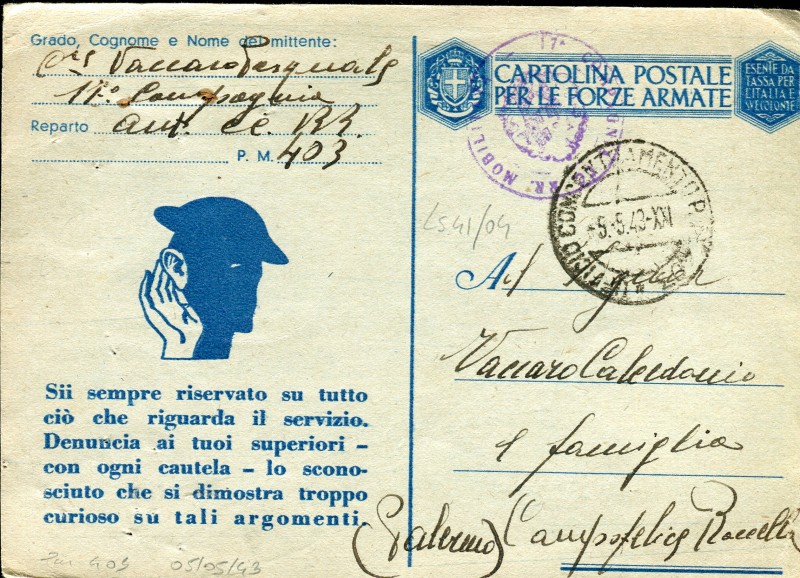 Grado, Cognome e Nome del mittente:
Vaccaro Pasquale
17º Compagnia
Reparto aut. CC. RR.
P. M. 403
CARTOLINA POSTALE
PER LE FORZE ARMATE
ESENTE DA
TASSA PER
L'ITALIA E
SVE COLONIE
17ª
MOBILI
CONCENTRAMENTO P.
5.5.43-XXI
LS41/04
A
Vaccaro Calcedonio
e famiglia
Campofelice Roccella
(Palermo)
Sii sempre riservato su tutto
ciò che riguarda il servizio.
Denuncia ai tuoi superiori –
con ogni cautela – lo scono-
sciuto che si dimostra troppo
curioso su tali argomenti.
403 05/05/43